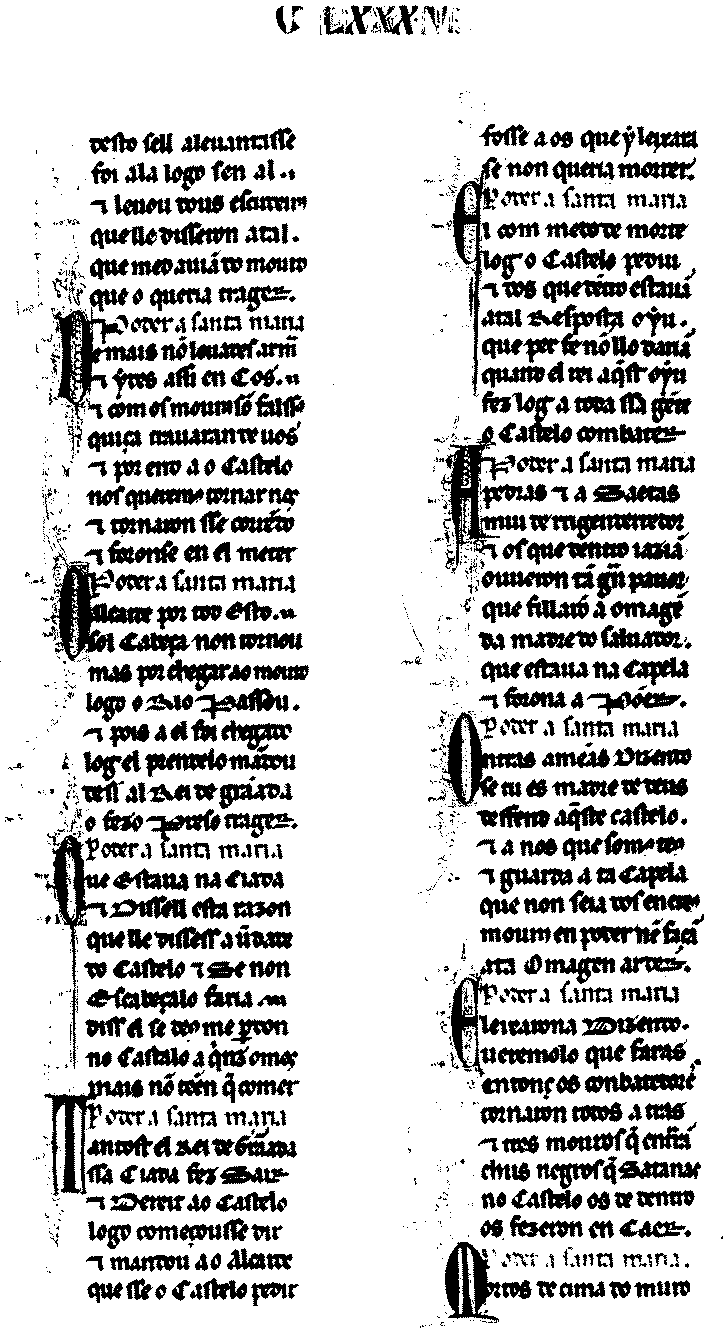 C LXXXV
desto sell aleuantasse
foi ala logo sen al.
⁊ leuou dous escudeir̃
que llo disseron atal.
que medauiã do mouro
que o queria trager.
Poder a santa maria
De mais nõ leuades armã
⁊ ydes assi en Cos.
⁊ com os mouros sõ falss
quiça trauaran de uos
⁊ por end a o Castelo
nos queremos tornar nos
⁊ tornaron sse correndo
⁊ foronse en el meter
Poder a santa maria
O alcaide por tod Esto.
sol Cabeça non tornou
mas por chegar ao mouro
logo o Rio Passou.
⁊ pois a el foi chegado
log el prendelo mãdou
dess al Rei de grãada
o fezo Preso trager.
Poder a santa maria
Que Estaua na Ciada
⁊ Dissell esta razon
que lle dissess a uerdade
do Castelo ⁊ Se non
Escabeçalo faria
diss el se deo me perdon
no Castelo a quinz omes
mais nõ teen q̃ comer
Poder a santa maria
Tantost el Rei de Grãada
ssa Ciada fez Sair
⁊ Deceir ao Castelo
logo começousse dir
⁊ mandou ao Alcaide
que sse o Castelo pedir
fosse a os que y leixara
se non queria morrer.
Poder a santa maria
E l com medo de morte
log o Castelo pediu
⁊ dos que dẽtro estauã
atal Resposta oyu.
que per se nõ llo dariã
quand el rei aq̃st oyu
fez log a toda ssa gẽte
o Castelo combater
Poder a santa maria
A pedras ⁊ a Saetas
mui de rrig en derredor
⁊ os que dentro iaziã
ouueron tã gr̃a pauor
que fillarõ a omagẽ
da madre do saluador.
que estaua na Capela
⁊ forona a Põer.
Poder a santa maria
Ontras amẽas Dizendo
se tu es madre de deus
deffend aq̃ste castelo.
⁊ a nos que somos teos
⁊ guarda a ta Capela
que non seia dos encreos
mouros en poder nẽ façã
ata Omagen arder.
Poder a santa maria
E leixarona Dizendo.
ueeremolo que faras
entonç os conbatedores
tornaron todos a tras
⁊ tres mouros q̃ entrarã
chus negros q̃ Satanas
no Castelo os de dentro
os fezeron en Caer.
Poder a santa maria.
Mortos de cima do muro